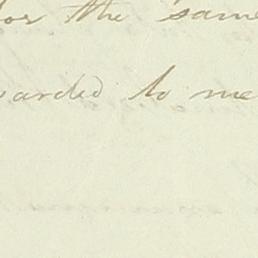 for the same
warded to me